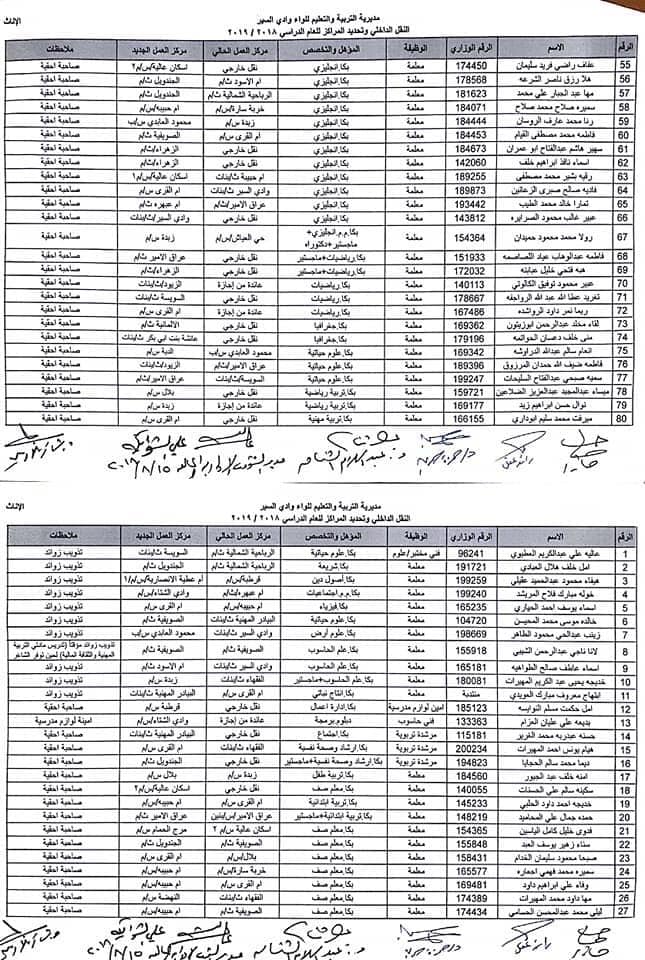 مديرية التربية والتعليم للواء وادي السير
الإناث
النقل الداخلي وتحديد المراكز للعام الدراسي ٢٠١٨ / ٢٠١٩
الرقم الاسم الرقم الوزاري الوظيفة المؤهل والتخصص مركز العمل الحالي مركز العمل الجديد ملاحظات
55 عفاف راضي فريد سليمان 174450 معلمة بكا.إنجليزي نقل خارجي اسكان عالية/س/م٢ صاحبة احقية
56 هلا رزق ناصر الشرعه 178568 معلمة بكا.إنجليزي ام الاسود ث/م الجندويل ث/م صاحبة احقية
57 مها عبد الجبار علي محمد 181623 معلمة بكا.إنجليزي الرباحية الشمالية ث/م الجندويل ث/م صاحبة احقية
58 سميره صلاح محمد صلاح 184071 معلمة بكا.إنجليزي خربة سارة/س/م ام حبيبه/س/م صاحبة احقية
59 رنا محمد عارف الروسان 184444 معلمة بكا.إنجليزي زبدة س/م محمود العابدي س/ب صاحبة احقية
60 فاطمه محمد مصطفى القيام 184453 معلمة بكا.إنجليزي ام القرى س/م الصويفية ث/م صاحبة احقية
61 سهير هاشم عبدالفتاح ابو عمران 184673 معلمة بكا.إنجليزي نقل خارجي الزهراء/ث/م صاحبة احقية
62 اسماء نافذ ابراهيم خلف 142060 معلمة بكا.إنجليزي نقل خارجي الزهراء/ث/م صاحبة احقية
63 رقيه بشير محمد مصطفى 189255 معلمة بكا.إنجليزي ام حبيبه ث/بنات اسكان عالية/س/م١ صاحبة احقية
64 فاديه صالح صبري الزعاتين 189873 معلمة بكا.إنجليزي وادي السير ث/بنات ام القرى س/م صاحبة احقية
65 تمارا خالد محمد الطيب 193442 معلمة بكا.إنجليزي عراق الامير/ث/بنات ام عبهره ث/م صاحبة احقية
66 عبير غالب محمود الصرايره 143812 معلمة بكا.إنجليزي نقل خارجي وادي السير/ث/بنات صاحبة احقية
67 رولا محمد محمود حميدان 154364 معلمة بكا.م.م.انجليزي+ماجستير+دكتوراه حي العياش/س/م زبدة س/م صاحبة احقية
68 فاطمه عبدالوهاب عياد الصماصمه 151933 معلمة بكا.رياضيات+ماجستير نقل خارجي عراق الامير ث/م صاحبة احقية
69 هبه فتحي خليل عبابنه 172032 معلمة بكا.رياضيات+ماجستير نقل خارجي الزهراء/ث/م صاحبة احقية
70 عبير محمود توفيق الكالوتي 140113 معلمة بكا.رياضيات عائدة من إجازة الزيود/ث/بنات صاحبة احقية
71 تغريد عطا الله عبد الله الرواجفه 178667 معلمة بكا.رياضيات نقل خارجي السويسة ث/بنات صاحبة احقية
72 ريما نمر داود الرواشده 167486 معلمة بكا.رياضيات عائدة من إجازة ام القرى س/م صاحبة احقية
73 لقاء مخلد عبدالرحمن ابوزيتون 169362 معلمة بكا.جغرافيا نقل خارجي الالمانية ث/م صاحبة احقية
74 منى خلف دعسان الحواتمه 179196 معلمة بكا.جغرافيا نقل خارجي عائشة بنت ابي بكر ث/بنات صاحبة احقية
75 انعام سالم عبدالله الدراوشه 169342 معلمة بكا.علوم حياتية محمود العابدي س/ب الدبة س/م صاحبة احقية
76 فاطمه ضيف الله حمدان المرزوق 189396 معلمة بكا.علوم حياتية نقل خارجي الزيود/ث/بنات صاحبة احقية
77 سميه صبحي عبدالفتاح السليحات 199247 معلمة بكا.علوم حياتية السويسة/ث/بنات عراق الامير/ث/م صاحبة احقية
78 ميساء عبدالمجيد عبدالعزيز الضلاعين 159721 معلمة بكا.تربية رياضية نقل خارجي بلال س/م صاحبة احقية
79 نوال حسن ابراهيم زيد 169177 معلمة بكا.تربية رياضية عائدة من إجازة زبدة س/م صاحبة احقية
80 ميرفت محمد سليم ابوداري 166155 معلمة بكا.تربية مهنية نقل خارجي ام القرى س/م صاحبة احقية
مديرية التربية والتعليم للواء وادي السير
الإناث
النقل الداخلي وتحديد المراكز للعام الدراسي ٢٠١٨ / ٢٠١٩
الرقم الاسم الرقم الوزاري الوظيفة المؤهل والتخصص مركز العمل الحالي مركز العمل الجديد ملاحظات
1 عاليه علي عبدالكريم العطيوي 96241 فني مختبر/علوم بكا.علوم حياتية الرباحية الشمالية ث/م السويسة ث/بنات تذويب زوائد
2 امل خلف هلال العبادي 191721 معلمة بكا.شريعة الرباحية الشمالية ث/م الجندويل ث/م تذويب زوائد
3 هيفاء محمود عبدالحميد عقيلي 199259 معلمة بكا.أصول دين قرطبة/س/م أم عطية الانصارية/س/م/١ تذويب زوائد
4 خوله مبارك فلاح المريشد 199240 معلمة بكا.م.م.اجتماعيات ام عبهره/ث/م وادي الشتاء/س/م تذويب زوائد
5 اسماء يوسف احمد الحياري 165235 معلمة بكا.فيزياء ام حبيبه/س/م ام القرى س/م تذويب زوائد
6 خالده موسى محمد المحيسن 104720 معلمة بكا.علوم حياتية البيادر المهنية ث/بنات الصويفية ث/م تذويب زوائد
7 زينب عبدالحي محمود الطاهر 198669 معلمة بكا.علوم أرض وادي السير ث/بنات محمود العابدي س/ب تذويب زوائد
8 لانا ناجي عبدالرحمن الشبيبي 155918 معلمة بكا.علم الحاسوب الصويفية ث/م الصويفية ث/م تذويب زوائد مؤقتا (تدريس مادتي التربية المهنية والثقافة المالية) لحين توفر الشاغر
9 اسماء عاطف صالح الطواهيه 165181 معلمة بكا.علم الحاسوب وادي السير ث/بنات ام الاسود ث/م تذويب زوائد
10 خديجه يحيى عبد الكريم المهيرات 180081 معلمة بكا.علم الحاسوب+ماجستير الفقهاء ث/بنات ام حبيبه س/م تذويب زوائد
11 ابتهاج معروف مبارك العويدي منتدبة معلمة بكا.إنتاج نباتي ام القرى س/م البيادر المهنية ث/بنات تذويب زوائد
12 امل حكمت مسلم النوايسه 185123 امين لوازم مدرسية بكا.إدارة اعمال نقل خارجي قرطبة س/م صاحبة احقية
13 بديعه علي عليان العزام 133363 فني حاسوب دبلوم.برمجة عائدة من اجازة وادي الشتاء/س/م امينة لوازم مدرسية
14 حسنه عبدربه محمد الغرير 115181 مرشدة تربوية بكا.اجتماع نقل خارجي البيادر المهنية ث/بنات صاحبة احقية
15 هيام يونس احمد المهيرات 200234 مرشدة تربوية بكا.إرشاد وصحة نفسية الفقهاء ث/بنات ام القرى س/م صاحبة احقية
16 ديما محمد سالم الحجايا 194823 مرشدة تربوية بكا.إرشاد وصحة نفسية+ماجستير نقل خارجي الجندويل ث/م صاحبة احقية
17 امنه خلف عبد الجبور 184560 معلمة بكا.تربية طفل زبدة س/م بلال س/م صاحبة احقية
18 سكينه سالم علي الحسنات 140055 معلمة بكا.معلم صف نقل خارجي اسكان عالية/س/م٢ صاحبة احقية
19 خديجه احمد داود الحلبي 145233 معلمة بكا.تربية ابتدائية ام القرى س/م ام حبيبه/س/م صاحبة احقية
20 حمده جمال علي المحاميد 148219 معلمة بكا.تربية ابتدائية+ماجستير عراق الامير/س/بنين عراق الامير ث/م صاحبة احقية
21 فدوى خليل كامل الياسين 154365 معلمة بكا.معلم صف اسكان عالية س/م ٢ مرج الحمام س/م صاحبة احقية
22 سناء زهير يوسف العبد 155848 معلمة بكا.معلم صف ام القرى س/م الجندويل ث/م صاحبة احقية
23 صبحا محمود سليمان الخدام 158431 معلمة بكا.معلم صف بلال/س/م ام القرى س/م صاحبة احقية
24 سميره محمد فهمي احماره 165577 معلمة بكا.معلم صف خربة سارة/س/م ام حبيبه س/م صاحبة احقية
25 وفاء علي ابراهيم داود 169481 معلمة بكا.معلم صف ام القرى س/م ام حبيبه س/م صاحبة احقية
26 مها داود محمد المهيرات 174389 معلمة بكا.معلم صف وادي السير ث/بنات النهضة س/م صاحبة احقية
27 ليلى محمد عبدالمحسن الحسامي 174434 معلمة بكا.معلم صف ام حبيبه/س/م الصويفية ث/م صاحبة احقية